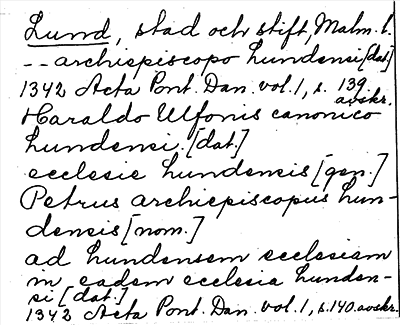 Lund, stad och stift, Malm. l.
-- archiepiscopo Lundensi [dat.]
1342 Acta Pont. Dan. vol. 1, s. 139
avskr.
Haraldo Ulfonis canonico
Lundensi. [dat.]
ecclesie Lundensis [gen.]
Petrus archiepiscopus Lun-
densis [nom.]
ad Lundensem ecclesiam
in eadem ecclesia Lunden-
si [dat.]
1342 Acta Pont. Dan. vol. 1, s. 140. avskr.